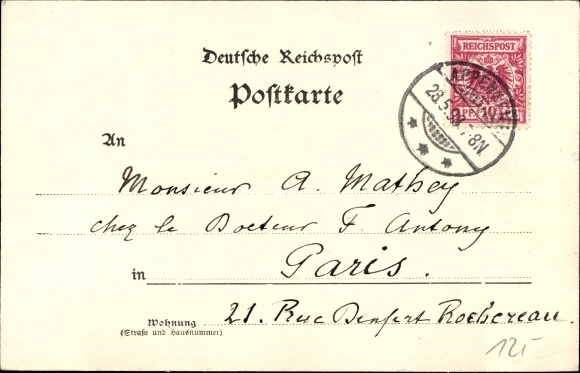 Deutsche Reichspost
Postkarte
REICHSPOST
10
28.5.98. 7-8N.
An
Monsieur A. Mathey
chez le Docteur F Antony
in Paris.
Wohnung 21. Rue Denfert Rochereau.
(Straße und Hausnummer)
12.-